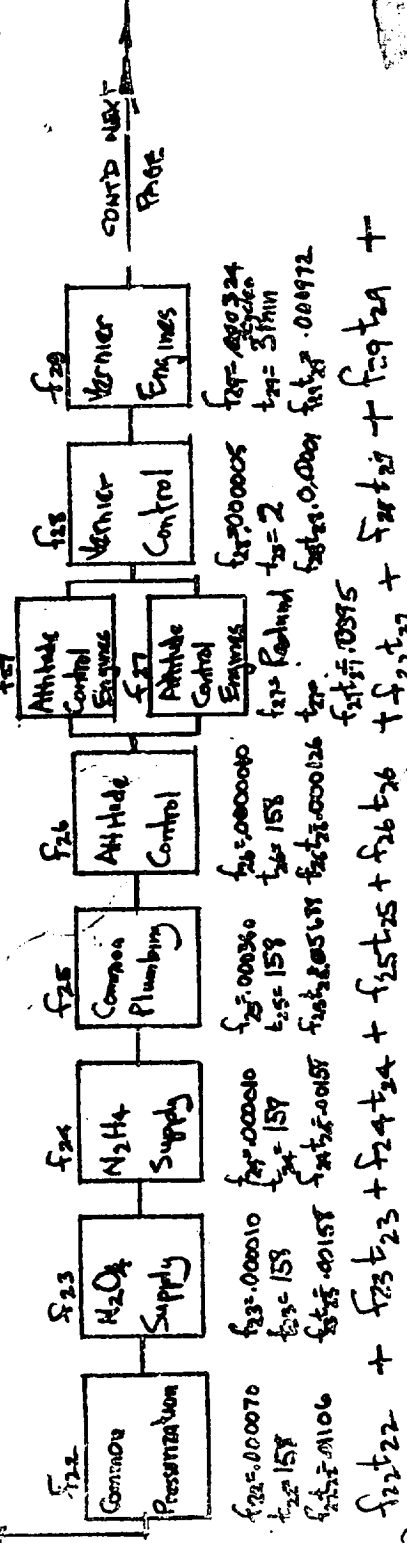 f22
Common
Pressurization
f22=.000070
t22=158
f22t22=.01106
f23
N2O4
Supply
f23=.000010
t23=158
f23t23=.00158
f24
N2H4
Supply
f24=.000010
t24=158
f24t24=.00158
f25
Common
Plumbing
f25=.000360
t25=158
f25t25=.05688
f26
Attitude
Control
f26=.0000010
t26=158
f26t26=.000126
f27
Attitude
Control
Engines
f27
Attitude
Control
Engines
f27=
t27=
f27t27=.0395
f28
Vernier
Control
f28=.000005
t28=2
f28t28=0.0001
f29
Vernier
Engines
f29=.000324
t29=3
f29t29=.000972
CONT'D NEXT
PAGE
f22t22 + f23t23 + f24t24 + f25t25 + f26t26 + f27t27 + f28t28 + f29t29 +